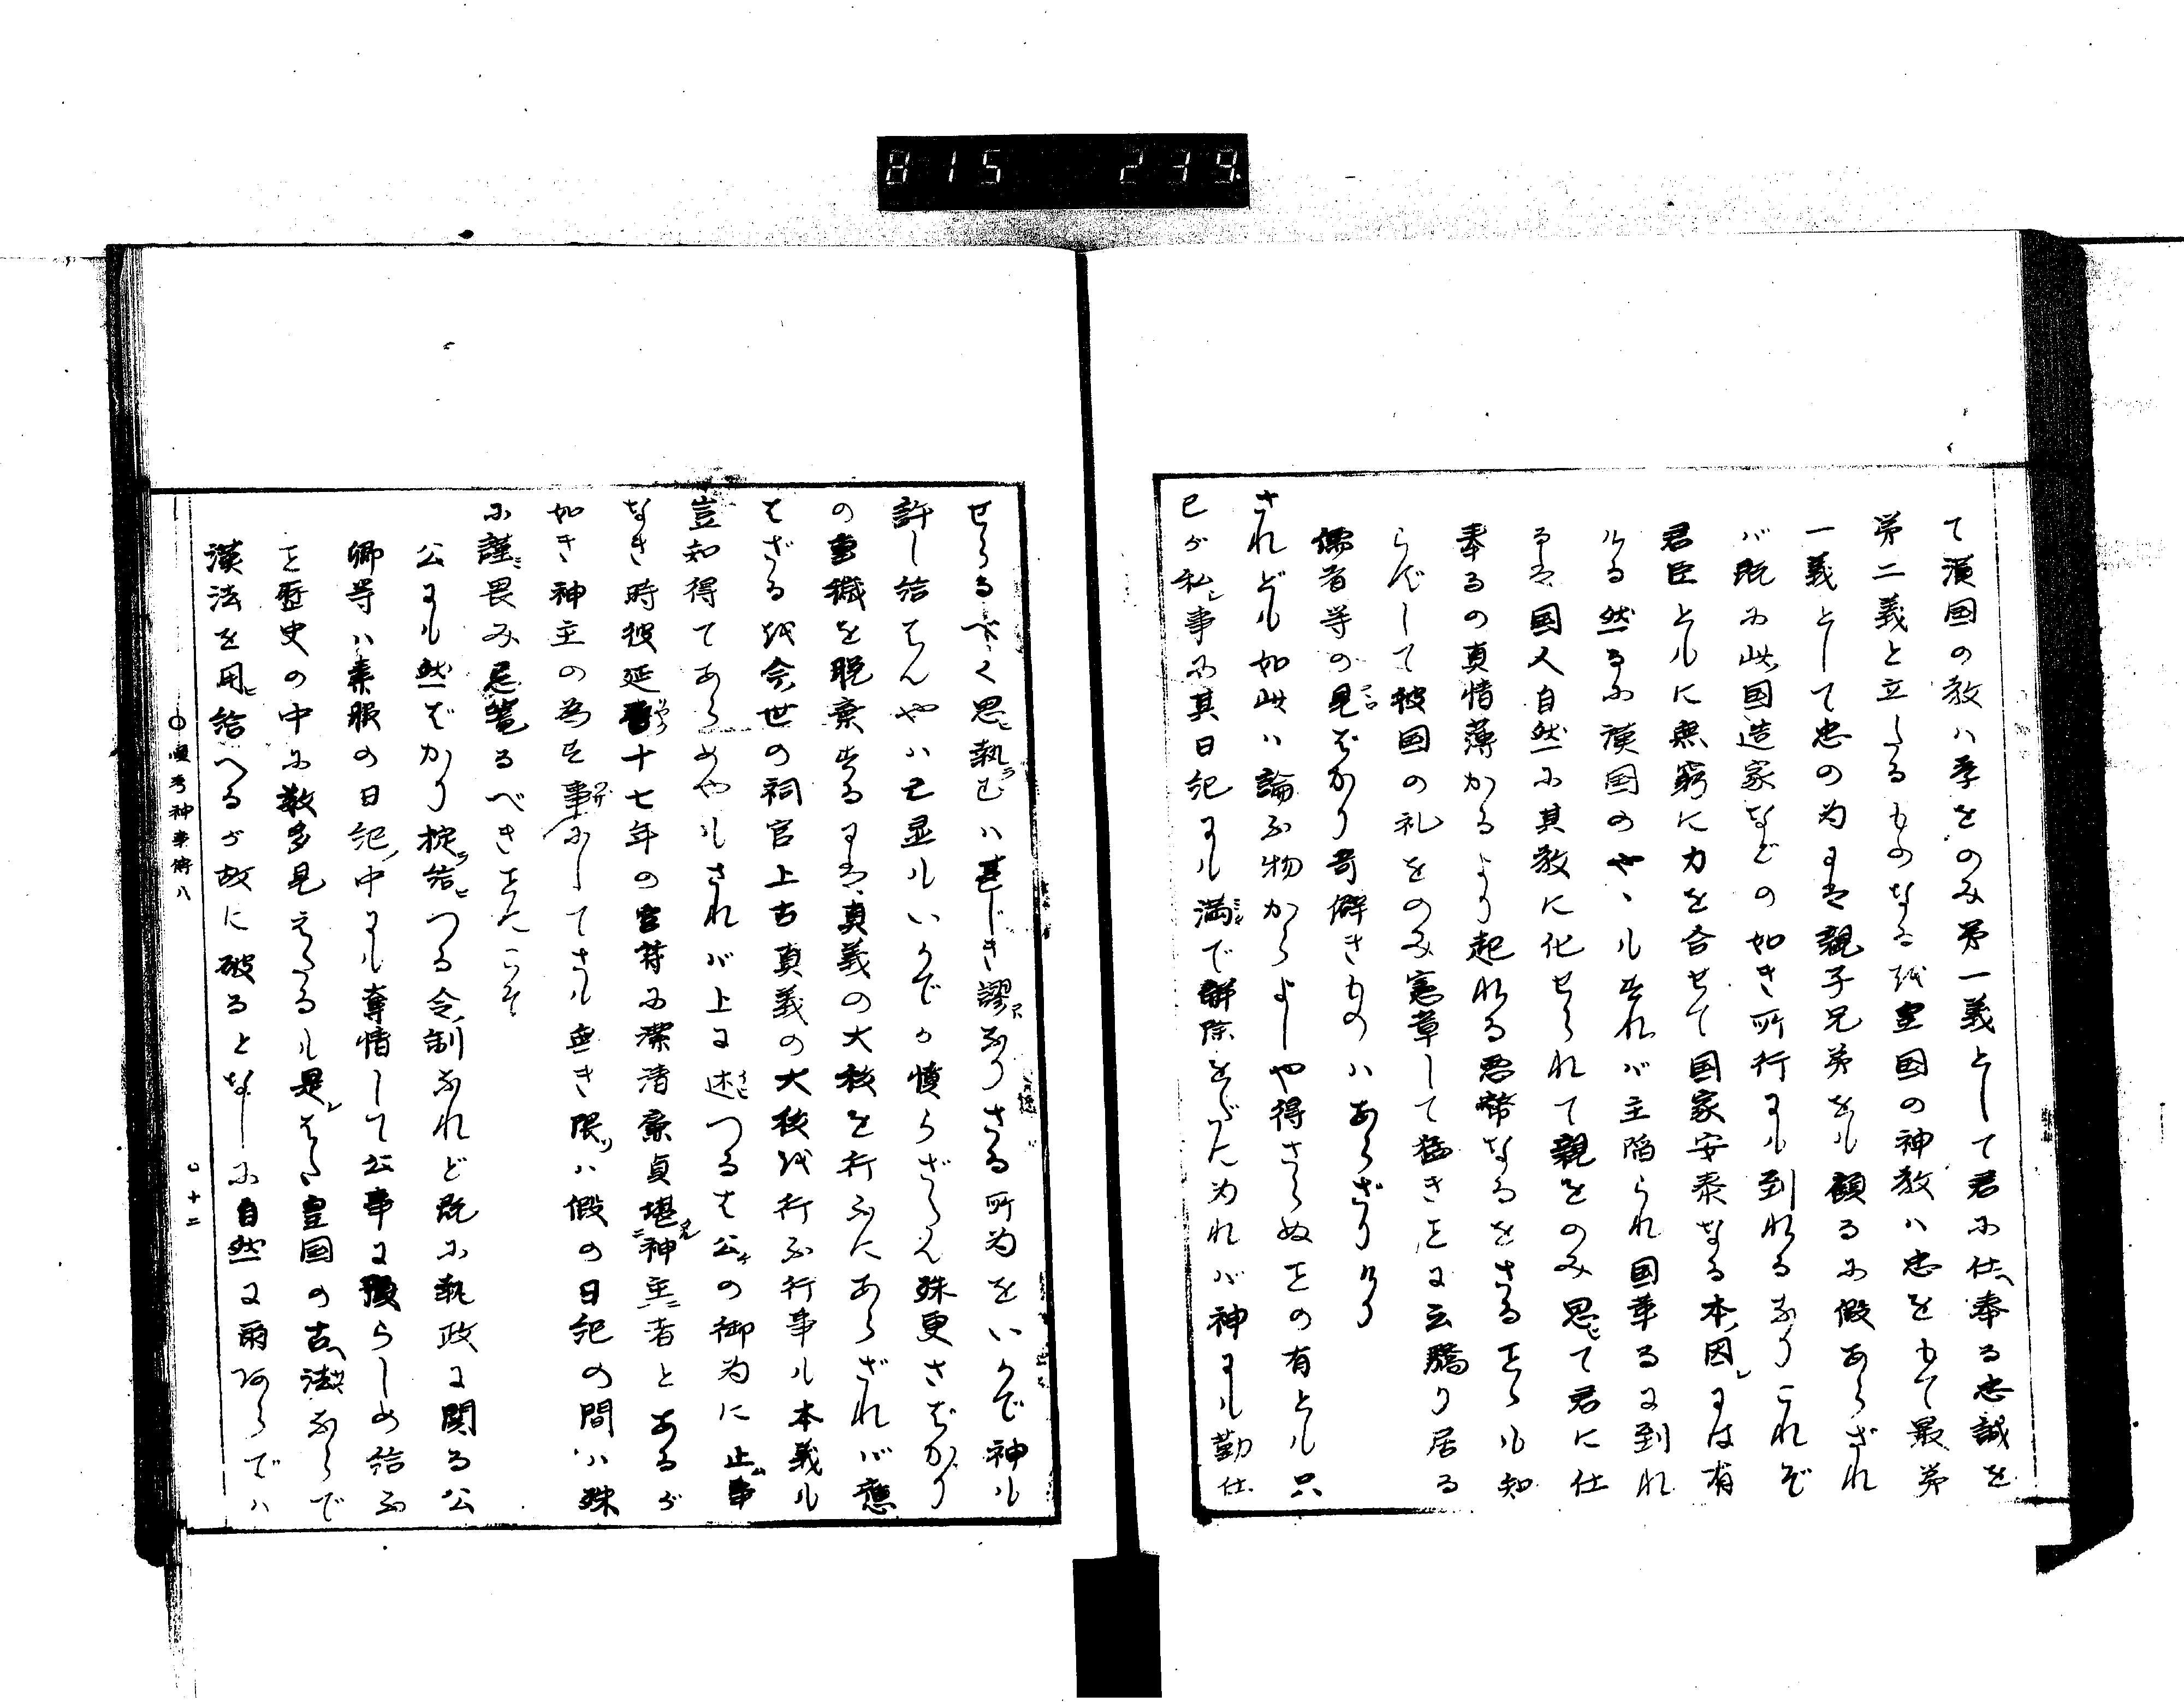 815 239
て漢国の教ハ孝をのみ第一義として君に仕奉る忠誠を
第二義と立たるものなるを皇国の神教ハ忠をもて最第
一義として忠の为には親子兄弟をも顧るに假あらざれ
バ既に此国造家などの如き所行にも到れるなりこれぞ
君臣ともに無窮に力を合せて国家安泰なる本因には有
ける然るに漢国のやゝもすれバ主陷られ国革るに到れ
るは国人自然に其教に化せられて親をのみ思て君に仕
奉るの真情薄かるより起れる悪幣なるをさることも知
らずして彼国の礼をのみ憲章して猛きことに云騰り居る
儒者等の見ばかり奇僻きものハあらざりけり
されども如此ハ論ふ物からよしや得さらぬことの有とも只
己が私事に其日記にも満で解除をだた为れバ神にも勤仕
せらるべく思執むハ甚じき謬なりさる所为をいかで神も
許し給はんやハ已显もいかでか憤らざらん殊更さばかり
の重穢を脱棄するには真義の大秡を行ふにあらざれバ應
はざるを今世の祠官上古真義の大秡を行ふ行事も本義も
豈知得てあらめやもされバ上に述つるは公の御为に止事
なき時彼延暦十七年の官符に潔清廉貞堪神主者とあるが
如き神主の为す事にしてさも無き限ハ假の日記の間ハ殊
に謹畏み忌篭るべきことにこそ
公にも然ばかり掟給つる令制なれど既に執政に関る公
卿等ハ素服の日記中にも奪情して公事に預らしめ給ふ
こと歴史の中に数多見えたるも是はた皇国の古法ならで
漢法を用給へるが故に破るとなしに自然に爾あらでハ
○顕考神事傳八
○十二